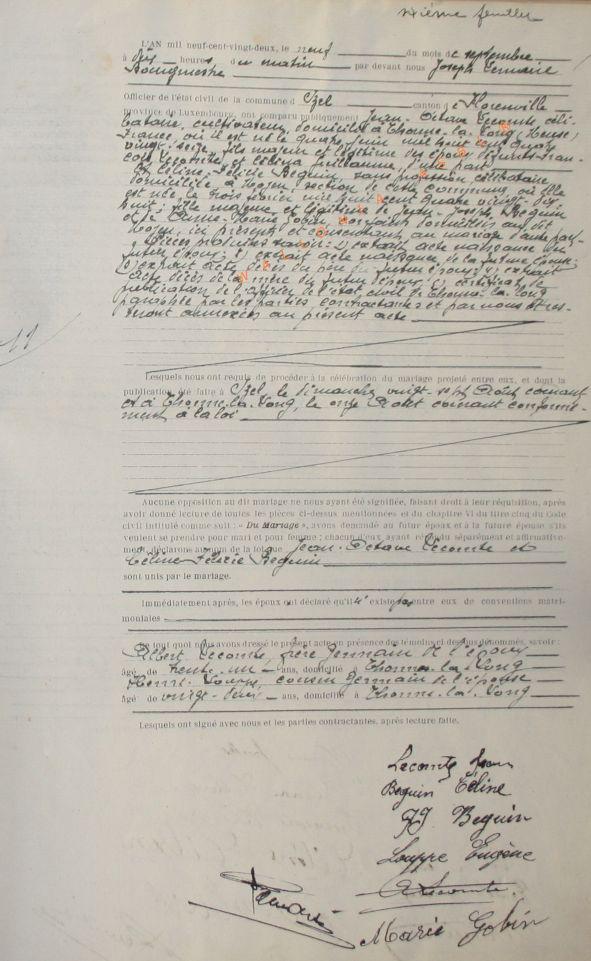 sixième feuillet
L'AN mil neuf-cent-vingt-deux, le neuf du mois de septembre
à dix heures du matin par devant nous Joseph Lemaire
Bourgmestre
Officier de l'état civil de la commune d'Izel canton de Florenville
province de Luxembourg, ont comparu publiquement Jean-Octave Lecomte céli-
bataire, cultivateur, domicilié à Thonne-la-Long (Meuse)
France, où il est né le quatre juin mil huit cent quatre
vingt-seize, fils majeur et légitime des époux défunts Fran-
çois Lecomte et Célina Guillaume, d'une part
Et Céline-Félicie Beguin, sans profession célibataire
domiciliée à Moyen, section de cette commune, où elle
est née le trois février mil huit cent quatre vingt-dix
huit; fille majeure et légitime de Jean-Joseph Beguin
et de Anne-Marie Gobin, conjoints domiciliés au dit
Moyen, ici présents et consentant au mariage d'autre part
Pièces produites savoir: 1) extrait acte naissance du
futur époux; 2) extrait acte naissance de la future épouse;
3) extrait acte décès du père du futur époux; 4) extrait
acte décès de la mère du futur époux; 5) certificat de
publication de l'officier de l'état civil de Thonne-la-Long
paraphé par les parties contractantes et par nous et res-
teront annexées au présent acte
11
Lesquels nous ont requis de procéder à la célébration du mariage projeté entre eux, et dont la
publication a été faite à Izel, le dimanche vingt-sept Août courant
et à Thonne-la-Long, le onze Août courant conformé-
ment à la loi
Aucune opposition au dit mariage ne nous ayant été signifiée, faisant droit à leur réquisition, après
avoir donné lecture de toutes les pièces ci-dessus mentionnées et du chapitre VI du titre cinq du Code
civil intitulé comme suit : « Du Mariage », avons demandé au futur époux et à la future épouse s'ils
veulent se prendre pour mari et pour femme ; chacun d'eux ayant répondu séparément et affirmative-
ment, déclarons au nom de la loi que Jean-Octave Lecomte et
Céline-Félicie Beguin
sont unis par le mariage.
Immédiatement après, les époux ont déclaré qu'il n'existe pas entre eux de conventions matri-
moniales
De tout quoi nous avons dressé le présent acte en présence des témoins ci-dessous dénommés, savoir :
Albert Lecomte, frère germain de l'époux
âgé de trente-un ans, domicilié à Thonne-la-Long
cousin germain de l'épouse
âgé de vingt- ans, domicilié à Thonne-la-Long
Lesquels ont signé avec nous et les parties contractantes, après lecture faite.
Lecomte Jean
Beguin Céline
JJ Beguin
Louppe Eugène
A Lecomte
Marie Gobin